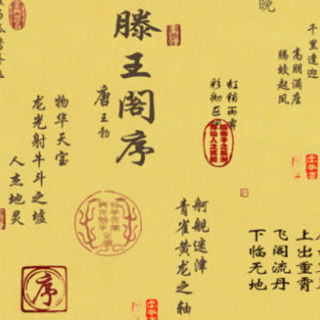 晚
千里逢迎
高朋满座
腾蛟起凤
上出重霄
飞阁流丹
下临无地
虹销雨霁
舸舰迷津
青雀黄龙之轴
滕王阁序
唐王勃
物华天宝
龙光射牛斗之墟
人杰地灵
序